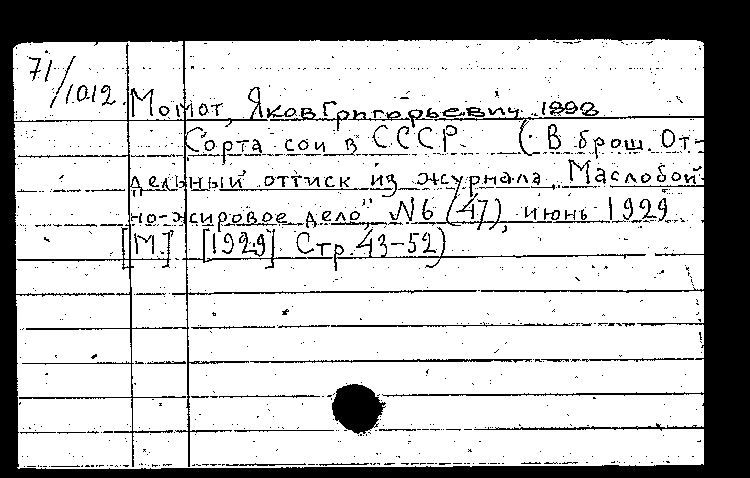 71/1012
Момот, Яков Григорьевич 1898
Сорта сои в СССР. (В брош. От-
дельный оттиск из журнала „Маслобой-
но-жировое дело", N6 (47), июнь 1929
[М.] [1929] Стр. 43-52)